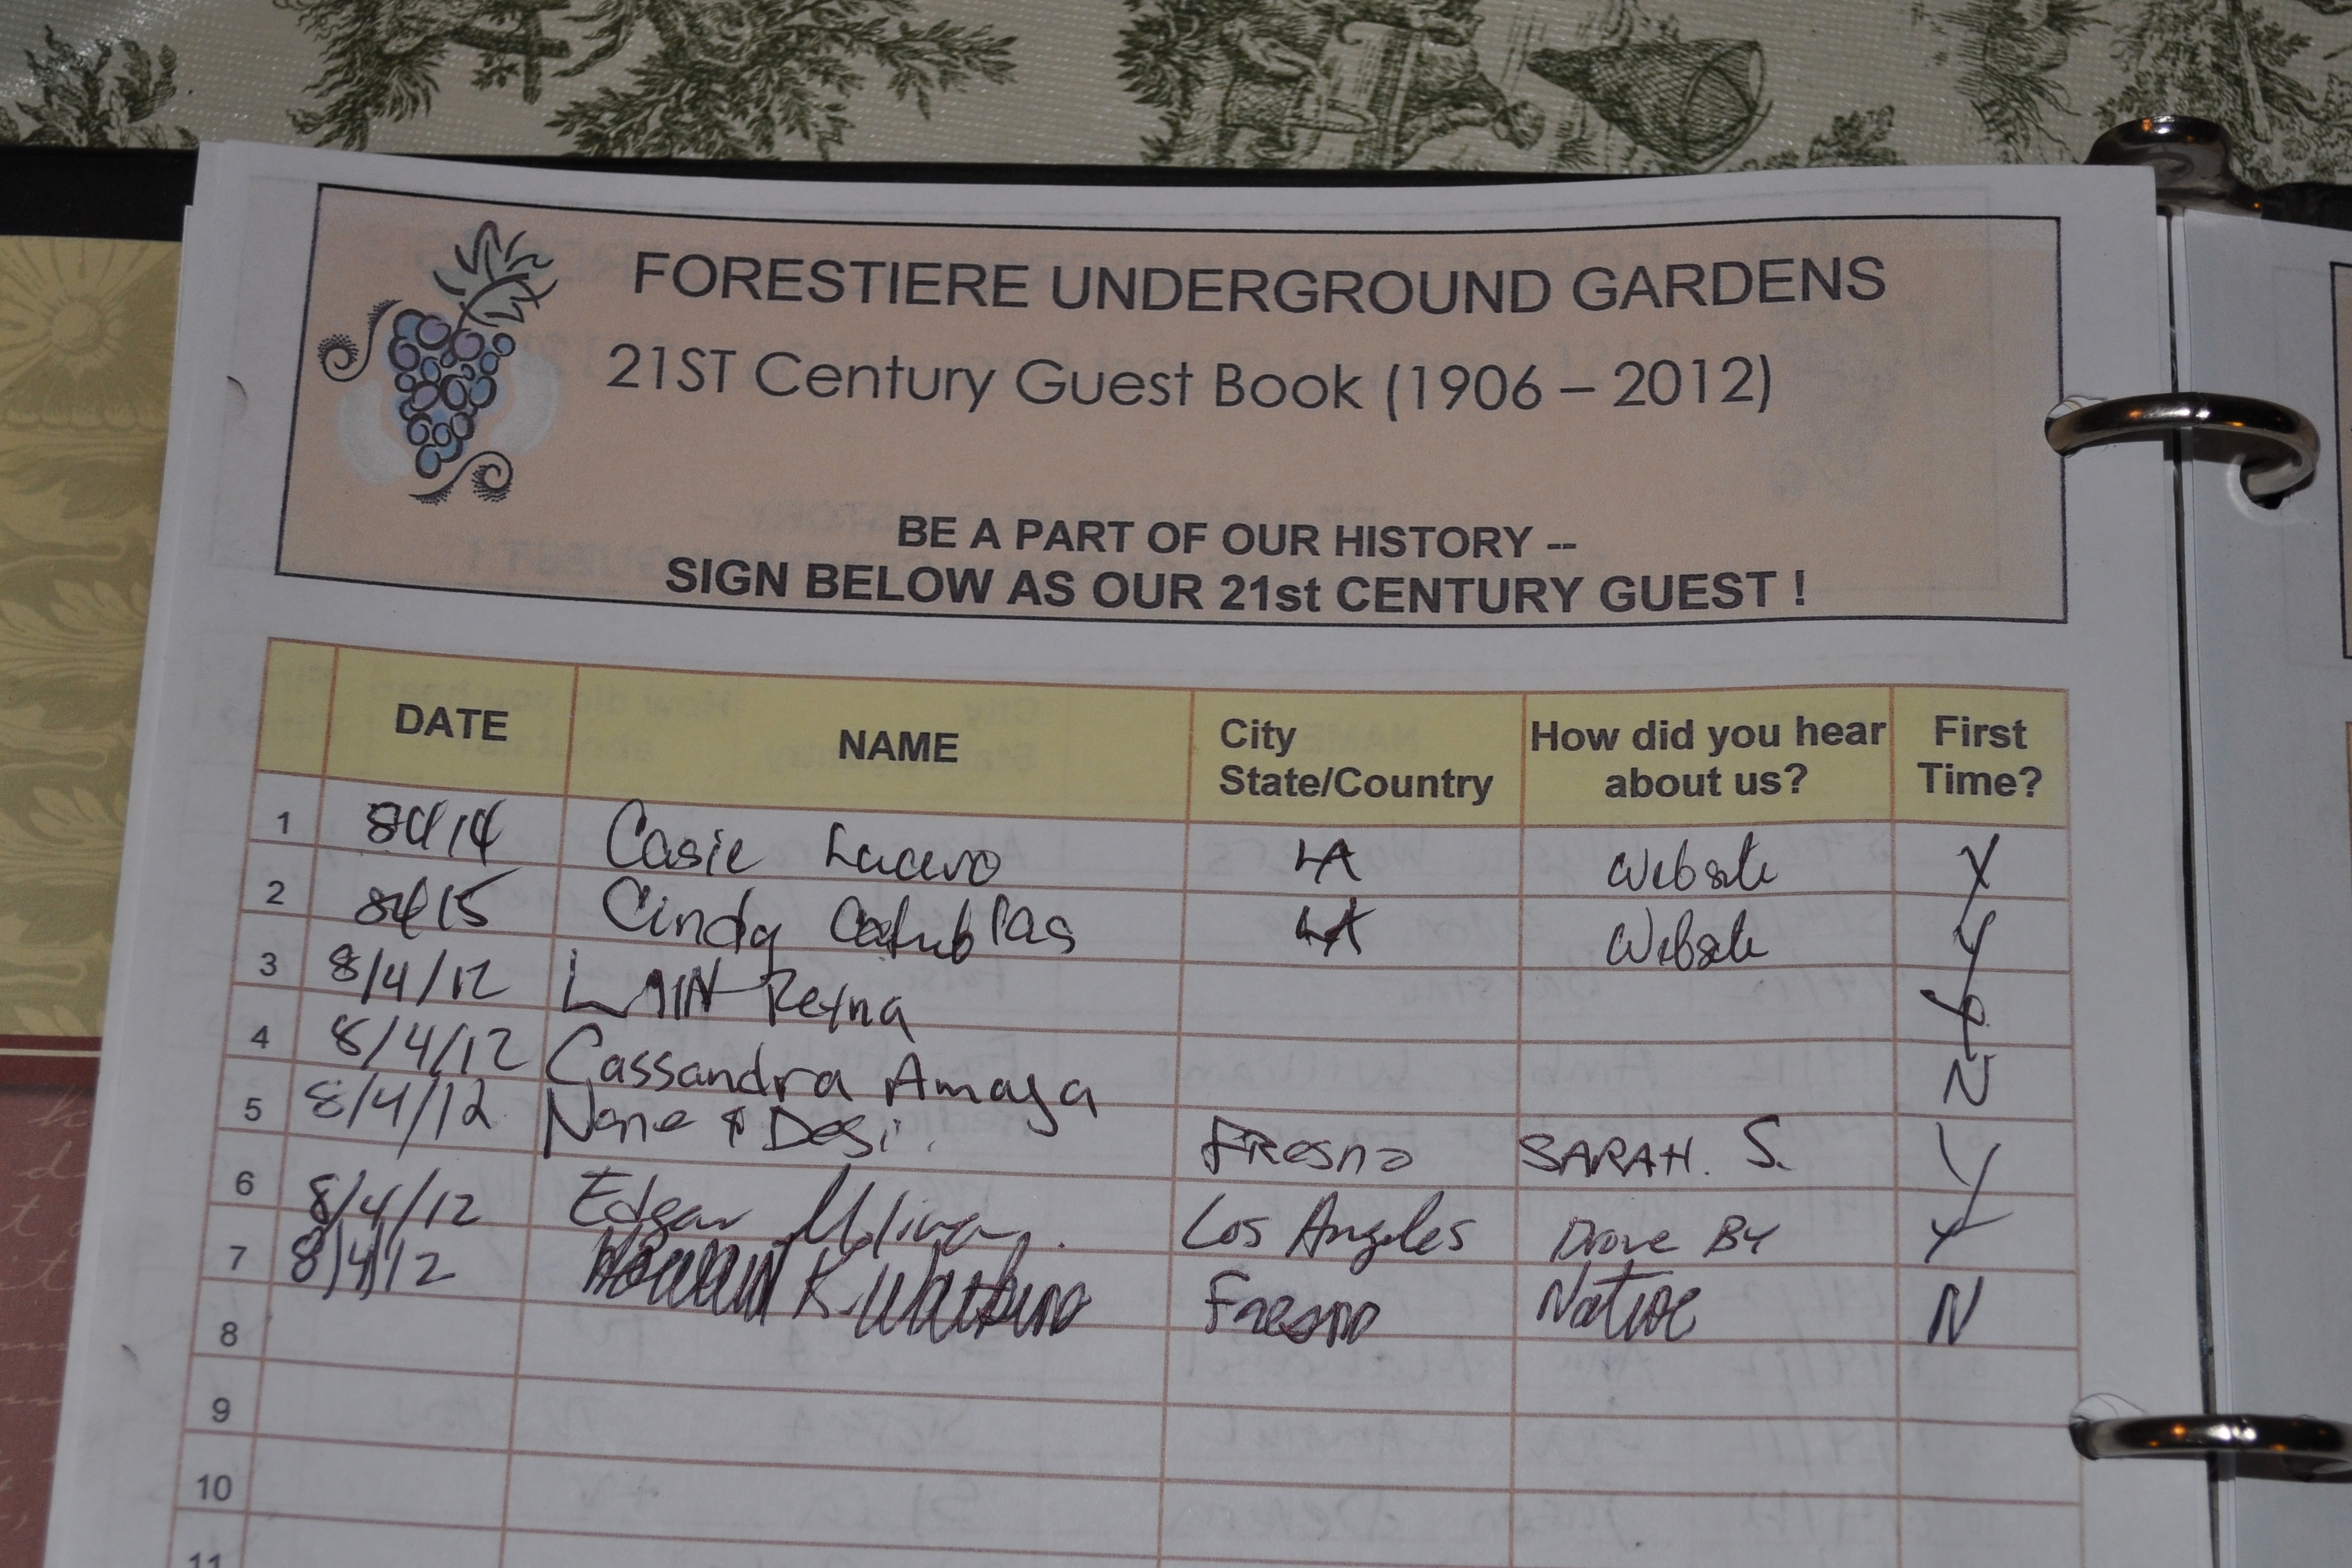 FORESTIERE UNDERGROUND GARDENS
21ST Century Guest Book (1906 – 2012)
BE A PART OF OUR HISTORY --
SIGN BELOW AS OUR 21st CENTURY GUEST !
DATE NAME City State/Country How did you hear about us? First Time?
1 Casie Lucero LA Website Y
2 Cindy LA Website Y
3 8/4/12 Reyna Y
4 8/4/12 Cassandra Amaya N
5 8/4/12 & Desi. Fresno SARAH. S. Y
6 8/4/12 Edgar Los Angeles Drove By Y
7 8/4/12 K. Fresno Native N
8
9
10
11